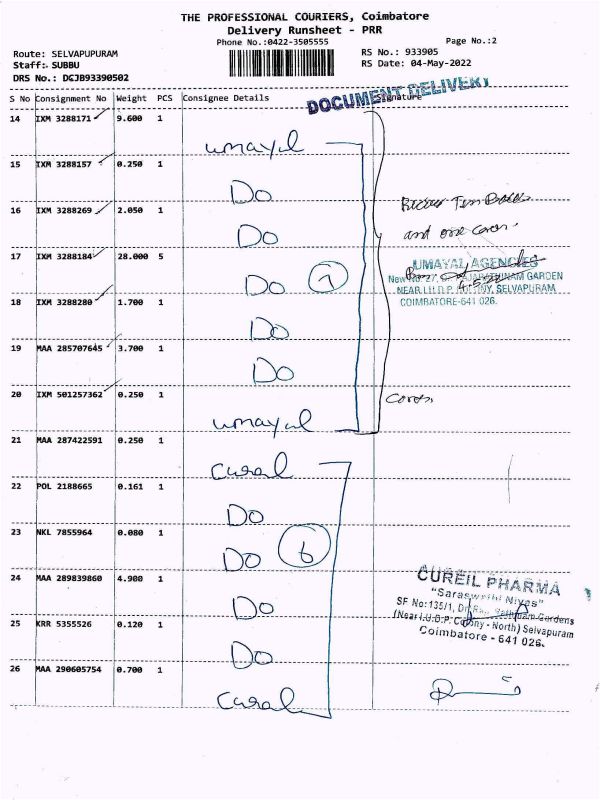 THE PROFESSIONAL COURIERS, Coimbatore
Delivery Runsheet - PRR
Phone No.:0422-3505555
Page No.:2
Route: SELVAPUPURAM
RS No.: 933905
Staff: SUBBU
RS Date: 04-May-2022
DRS No.: DCJB93390502
DOCUMENT DELIVERY
S No Consignment No Weight PCS Consignee Details Signature
14 IXM 3288171 9.600 1
umayal
15 IXM 3288157 0.250 1
Do
16 IXM 3288269 2.050 1
Do
and one cover.
17 IXM 3288184 28.000 5
Do 7
UMAYAL AGENCIES
4-5-22
GARDEN
SELVAPURAM
COIMBATORE-641 026.
18 IXM 3288280 1.700 1
Do
19 MAA 285707645 3.700 1
Do
20 IXM 501257362 0.250 1
umayal
Cover
21 MAA 287422591 0.250 1
Cureil
22 POL 2188665 0.161 1
Do
23 NKL 7855964 0.080 1
Do 6
24 MAA 289839860 4.900 1
Do
CUREIL PHARMA
"Saraswathi Nivas"
SF No:135/1,
Gardens
(Near I.U.D.P. Colony - North) Selvapuram
Coimbatore - 641 026.
25 KRR 5355526 0.120 1
Do
26 MAA 290605754 0.700 1
Cureil